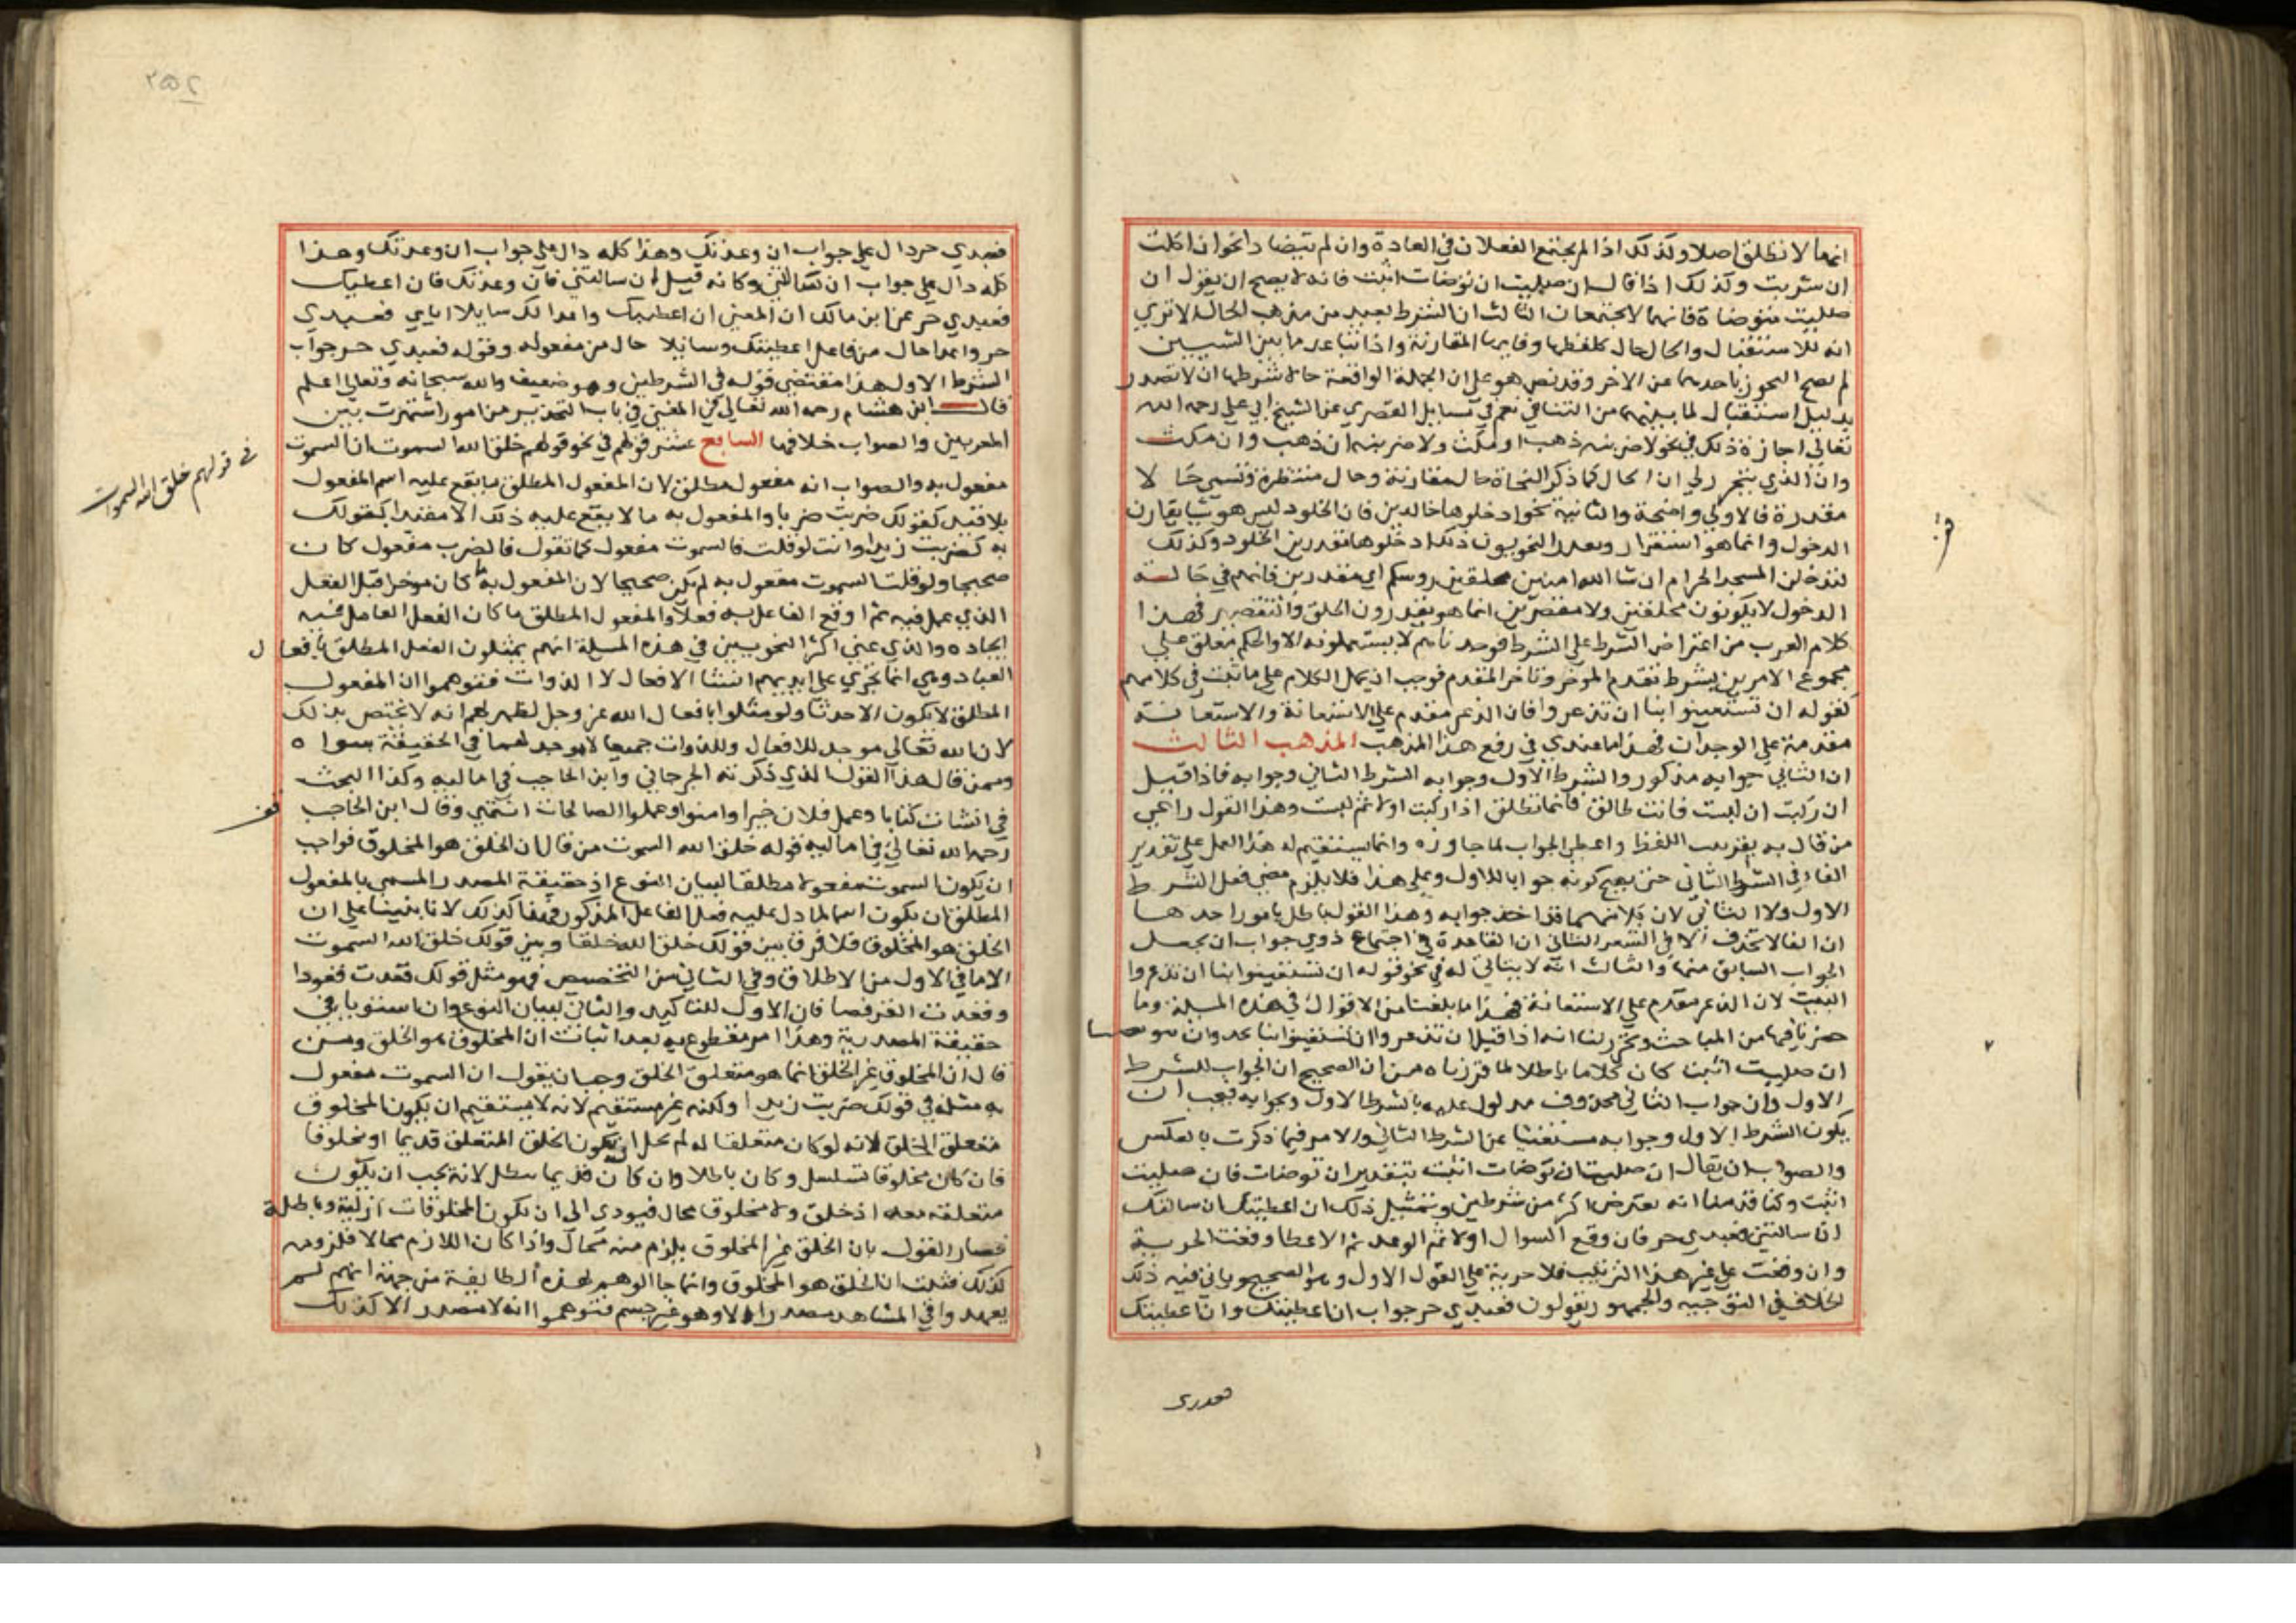 انها لا تطلق اصلا وكذلك اذا لم يجتمع الفعلان في العادة وان لم يتضادا نحو ان اكلت
ان شربت وكذلك اذا قال ان صليت ان توضات اثبت فانه لا يصح ان يقول ان
صليت متوضاة فانهما لا يجتمعان الثالث ان الشرط بعيد من مذهب الحال الا تري
انه للاستقبال والحال حال كلفظها وفايدتها المقارنة واذا تباعد ما بين الشيين
لم يصح التجوز باحدهما عن الاخر وقد نص هو علي ان الجملة الواقعة حالا شرطها ان لا تصدر
بدليل استقبال لما بينهما من التنافي نعم في مسايل القصري عن الشيخ ابي علي رحمه الله
تعالي اجازة ذلك في نحو لاضربنه ذهب او مكث ولاضربنه ان ذهب وان مكث
وان الذي يتحرر لي ان الحال كما ذكر النحاة حال مقارنة وحال منتظرة وتسمي حالا
مقدرة فالاولي واضحة والثانية نحو ادخلوها خالدين فان الخلود ليس هو شيا يقارن
الدخول وانما هو استقرار ويقدر النحويون ذلك ادخلوها مقدرين الخلود وكذلك
لتدخلن المسجد الحرام ان شا الله امنين محلقين روسكم اي مقدرين فانهم في حالة
الدخول لا يكونون محلقين ولا مقصرين انما هو يقدرون الحلق والتقصير فهذا
كلام العرب من اعتراض الشرط علي الشرط فوجدناهم لا يستعملونه الا والحكم معلق علي
مجموع الامرين بشرط تقدم الموخر وتاخر المتقدم فوجب ان يحمل الكلام علي ما ثبت في كلامهم
كقوله ان تستغيثوا بنا ان تذعروا فان الذعر مقدم علي الاستغاثة والاستغاثة
مقدمة علي الوجدان فهذا ما عندي في رفع هذا المذهب المذهب الثالث
ان الثاني جوابه مذكور والشرط الاول وجوابه الشرط الثاني وجوابه فاذا قيل
ان ركبت ان لبست فانت طالق فانما تطلق اذا ركبت اولا ثم لبست وهذا القول راعي
من قال به بترتيب اللفظ واعطي الجواب لما جاوره وانما يستقيم له هذا العمل علي تقدير
الفاء في الشرط الثاني حتي يصح كونه جوابا للاول وعلي هذا فلا يلزم مضي فعل الشرط
الاول ولا الثاني لان كلا منهما قد اخذ جوابه وهذا القول باطل بامور احدها
ان الفا لا تحذف الا في الشعر الثاني ان القاعدة في اجتماع ذوي جواب ان يجعل
الجواب السابق منها والثالث انه لا يتاتي له في نحو قوله ان تستغيثوا بنا ان تذعروا
البيت لان الذعر مقدم علي الاستغاثة فهذا ما بلغنا من الاقوال في هذه المسيلة وما
حضرنا فيها من المباحث وتحرر لنا انه اذا قيل ان تذعروا ان تستغيثوا بنا تجدوا
ان صليت اثبت كان كلاما باطلا لما قررناه من ان الصحيح ان الجواب للشرط
الاول وان جواب الثاني محذوف مدلول عليه بالشرط الاول وبجوابه فيجب ان
يكون الشرط الاول وجوابه مستغنيا عن الشرط الثاني والامر فيما ذكرت بالعكس
والصواب ان يقال ان صليت ان توضات اثبت بتقدير ان توضات فان صليت
اثبت وكنا قدمنا انه يعترض اكثر من شرطين وتمثيل ذلك ان اعطيتك ان سالتك
ان سالتني فعبدي حر فان وقع السوال اولا ثم الوعد ثم الاعطا وقعت الحرية
وان وقعت علي غير هذا الترتيب فلا حرية علي القول الاول وهو الصحيح وياتي فيه ذلك
الخلاف في التوجيه والجمهور يقولون فعبدي حر جواب ان اعطيتك وان اعطيتك
فعبدي
فعبدي حر دال علي جواب ان وعدتك وهذا كله دال علي جواب ان وعدتك وهذا
كله دال علي جواب ان سالتني وكانه قيل ان سالتني فان وعدتك فان اعطيتك
فعبدي حر عن ابن مالك ان المعني ان اعطيتك واعدا لك سايلا اياي فعبدي
حر واعدا حال من فاعل اعطيتك وسايلا حال من مفعوله وقوله فعبدي حر جواب
الشرط الاول هذا مقتضي قوله في الشرطين وهو ضعيف والله سبحانه وتعالي اعلم
قال ابن هشام رحمه الله تعالي في المغني في باب التحذير من امور اشتهرت بين
المعربين والصواب خلافها السابع عشر قولهم في نحو قولهم خلق الله السموت ان السموت
مفعول به والصواب انه مفعول مطلق لان المفعول المطلق ما يقع عليه اسم المفعول
بلا قيد كقولك ضربت ضربا والمفعول به ما لا يقع عليه ذلك الا مقيدا كقولك
به كضربت زيدا وانت لو قلت فالسموت مفعول كما تقول فالضرب مفعول كان
صحيحا ولو قلت السموت مفعول به لم يكن صحيحا لان المفعول به ما كان موخرا قبل الفعل
الذي عمل فيه ثم اوقع الفاعل به فعلا والمفعول المطلق ما كان الفعل العامل فيه
ايجاده والذي غني اكثر النحويين في هذه المسيلة انهم يمثلون الفعل المطلق بافعال
العباد وهي انما تجري علي ايديهم انشا الافعال لا الذوات فتوهموا ان المفعول
المطلق لا يكون الا حدثا ولو مثلوا بافعال الله عز وجل لظهر لهم انه لا يختص بذلك
لان الله تعالي موجد للافعال وللذوات جميعا لا موجد لهما في الحقيقة سواه
وممن قال هذا القول الذي ذكرته الجرجاني وابن الحاجب في اماليه وكذا البحث
في انشات كتابا وعمل فلان خيرا وامنوا وعملوا الصالحات انتهي وقال ابن الحاجب
رحمه الله تعالي في اماليه قوله خلق الله السموت من قال ان الخلق هو المخلوق فواجب
ان يكون السموت مفعولا مطلقا لبيان النوع اذ حقيقة المصدر المسمي بالمفعول
المطلق ان يكون اسما لما دل عليه فعل الفاعل المذكور وهذا كذلك لانا بنينا علي ان
الخلق هو المخلوق فلا فرق بين قولك خلق الله خلقا وبين قولك خلق الله السموت
الا ما في الاول من الاطلاق وفي الثاني من التخصيص فهو مثل قولك قعدت قعودا
وقعدت القرفصا فان الاول للتاكيد والثاني لبيان النوع وان استويا في
حقيقة المصدرية وهذا امر مقطوع به بعد اثبات ان المخلوق هو الخلق ومن
قال ان المخلوق غير الخلق انما هو متعلق الخلق وجب ان يقول ان السموت مفعول
به مثله في قولك ضربت زيدا ولكنه غير مستقيم لانه لا يستقيم ان يكون المخلوق
متعلق الخلق لانه لو كان متعلقا له لم يخل ان يكون الخلق المتعلق قديما او مخلوقا
فان كان مخلوقا تسلسل وكان باطلا وان كان قديما بطل لانه يجب ان يكون
متعلقه معه اذ خلق ولا مخلوق محال فيودي الي ان يكون المخلوقات ازلية وباطلة
فصار القول بان الخلق غير المخلوق يلزم منه محال واذا كان اللازم محالا فملزومه
كذلك فثبت ان الخلق هو المخلوق وانما جا الوهم لهذه الطايفة من جهة انهم لم
يعهدوا في المشاهد مصدرا الا وهو غير جسم فتوهموا انه لا مصدر الا كذلك
في قولهم خلق الله السموات